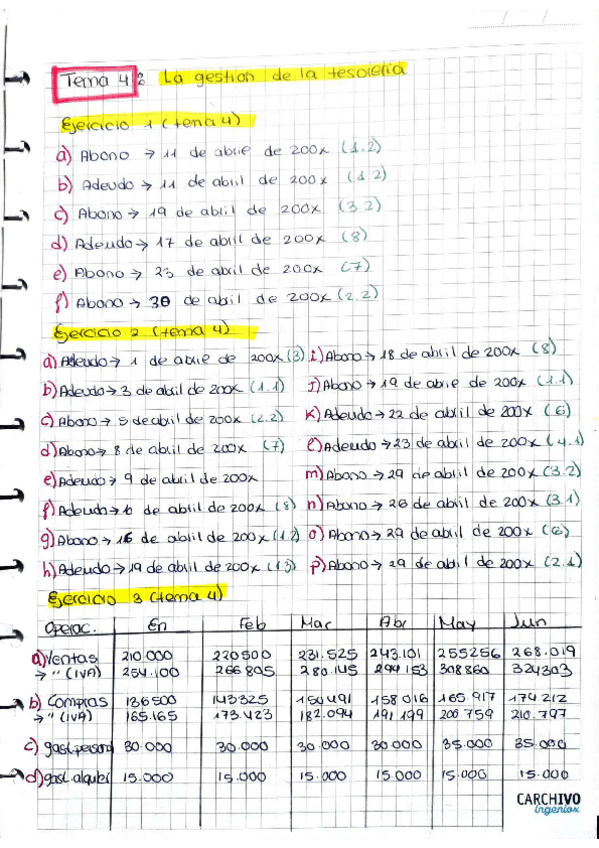 Tema 4: La gestion de la tesorería
Ejercicio 1 (tema 4)
a) Abono → 11 de abril de 200x (1.2)
b) Adeudo → 11 de abril de 200x (1.2)
c) Abono → 19 de abril de 200x (3.2)
d) Adeudo → 17 de abril de 200x (8)
e) Abono → 23 de abril de 200x (7)
f) Abono → 30 de abril de 200x (2.2)
Ejercicio 2 (tema 4)
a) Adeudo → 1 de abril de 200x (3) i) Abono → 18 de abril de 200x (8)
b) Adeudo → 3 de abril de 200x (1.1) J) Abono → 19 de abril de 200x (1.1)
c) Abono → 5 de abril de 200x (2.2) K) Adeudo → 22 de abril de 200x (6)
d) Abono → 8 de abril de 200x (7) l) Adeudo → 23 de abril de 200x (4.1)
e) Adeudo → 9 de abril de 200x m) Abono → 29 de abril de 200x (3.2)
f) Adeudo → 6 de abril de 200x (8) n) Abono → 26 de abril de 200x (3.1)
g) Abono → 16 de abril de 200x (1.2) o) Abono → 29 de abril de 200x (6)
h) Adeudo → 19 de abril de 200x (1.3) p) Abono → 29 de abril de 200x (2.1)
Ejercicio 3 (tema 4)
Operac. En Feb Mar Abr May Jun
a) Ventas 210.000 220500 231.525 243.101 255256 268.019
→ " (IVA) 254.100 266805 280.145 294.153 308860 324303
b) Compras 136500 143325 150491 158016 165.917 174212
→ " (IVA) 165.165 173.423 182.094 191199 200759 210.797
c) gast.personal 30.000 30.000 30.000 30.000 35.000 35.000
d) gast.alquiler 15.000 15.000 15.000 15.000 15.000 15.000
CARCHIVO
ingeniox